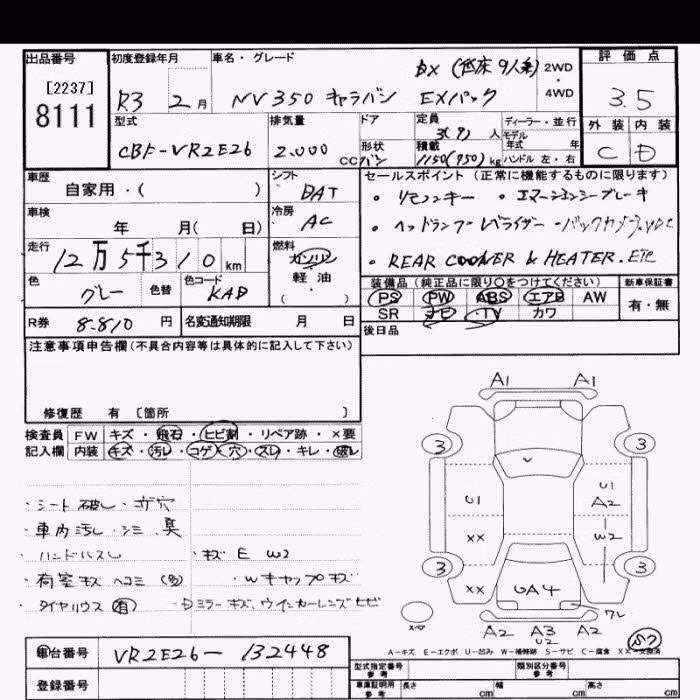 出品番号
[2237]
8111
初度登録年月
R3 2月
車名・グレード
DX (低床 9人乗)
NV350 キャラバン EXパック
2WD
・
4WD
評価点
3.5
外装 内装
C D
型式
CBF-VR2E26
排気量
2.000 CC
ドア
形状
バン
定員
3(9)人
積載
1150(950)kg
ディーラー・並行
モデル
年式 年
ハンドル 左・右
車歴
自家用・( )
シフト
DAT
車検
年 月( 日)
冷房
AC
走行
12万5千310km
燃料
ガソリン
軽・油
・( )
色
グレー
色替
色コード
KAD
R券 8-810 円
名変通知期限 月 日
セールスポイント(正常に機能するものに限ります)
・リモコンキー ・エマージェンシーブレーキ
・ヘッドランプレベライザー ・バックカメラ.VDC
・REAR COOLER & HEATER. ETC
装備品(純正品に限り○をつけてください)
PS PW ABS エアB AW
SR ナビ ・TV カワ
新車保証書
有・無
後日品
注意事項申告欄(不具合内容等は具体的に記入して下さい)
修復歴 有 〔箇所 〕
検査員 FW キズ・飛石・ヒビ割・リペア跡・×要
記入欄 内装 キズ・汚レ・コゲ・穴・スレ・キレ・破レ
・シート破レ・コゲ穴
・車内汚レ・シミ 臭
・ハンドルスレ ・キズ E W2
・荷室キズ ヘコミ(多) ・Wキャップキズ
・タイヤハウス(有) ・Dミラーキズ、ウインカーレンズヒビ
A1 A1
3 3
U1
U1
A2
XX W2
3 3
XX UA4
ワレ
スペア
A2 A3 A2
U2
A-キズ E-エクボ U-凹み W-補修跡 S-サビ C-腐食 XX-交換済
車台番号 VR2E26-132448
登録番号
型式指定番号
参考
類別区分番号
参考
車庫証明用
参考
長さ cm
幅 cm
高さ cm